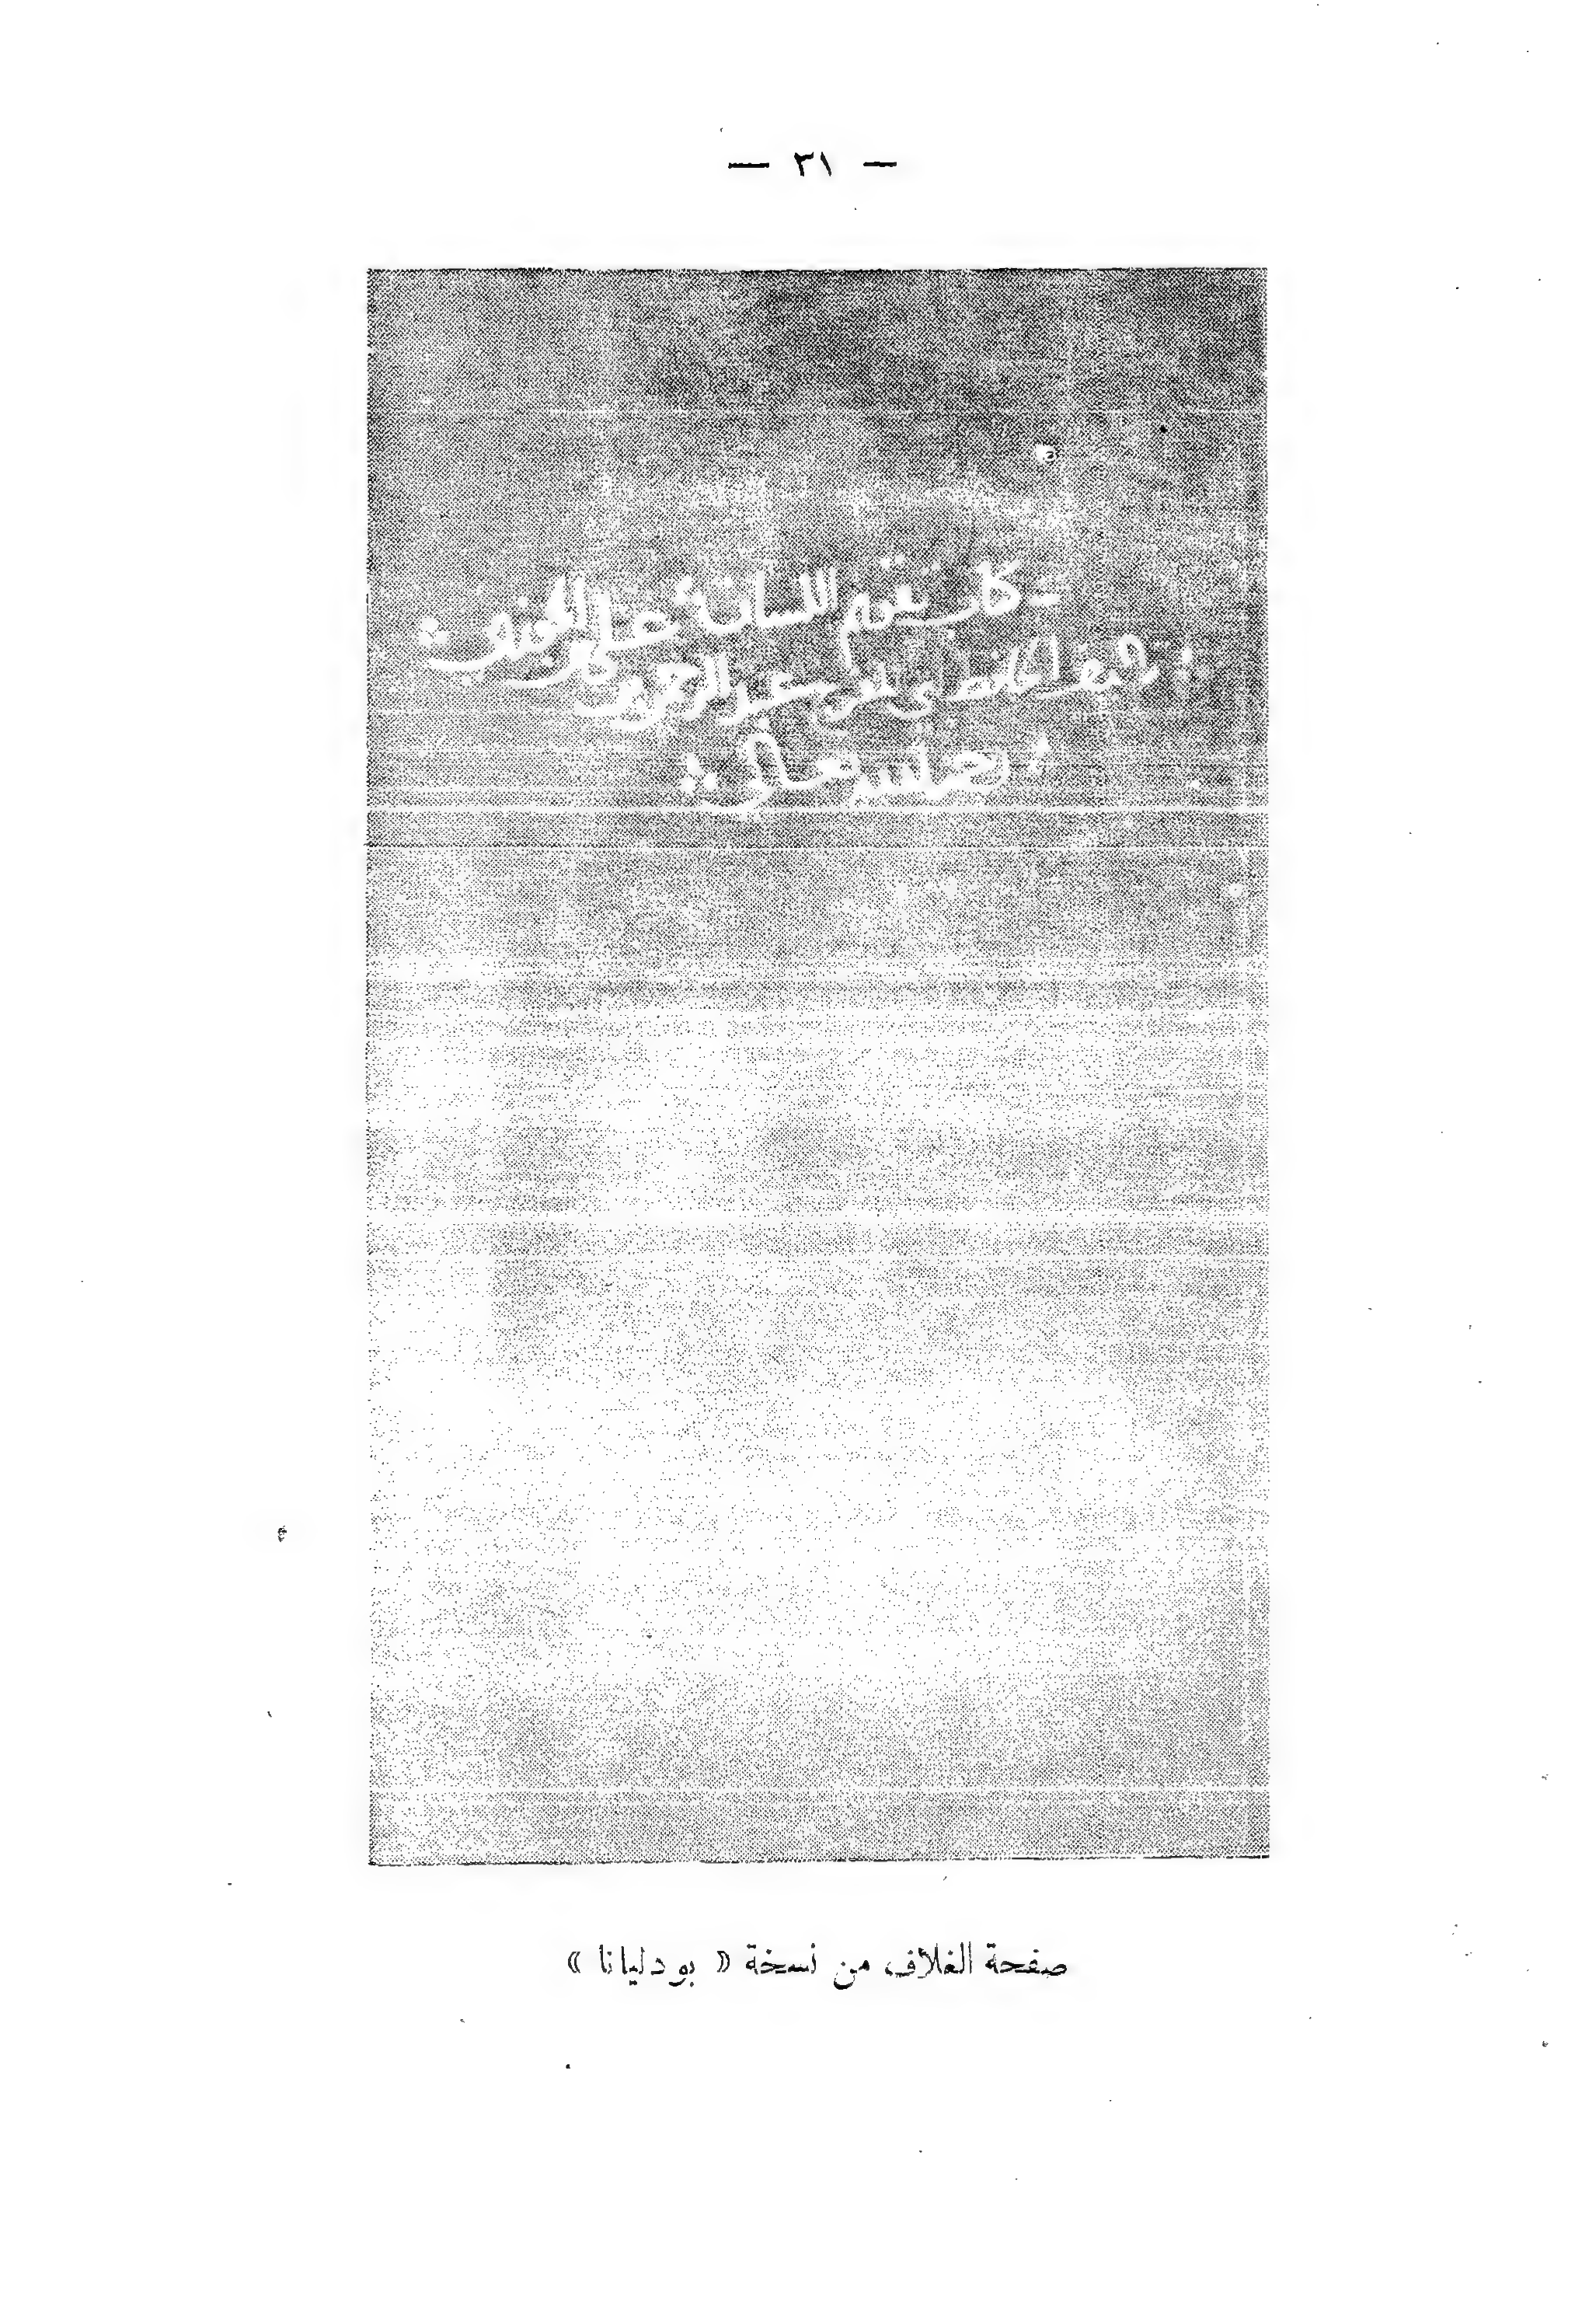 — ٣١ —
كتاب تقويم اللسان
تاليف الحافظ ابي الفرج عبد الرحمن
رحمه الله تعالى
صفحة الغلاف من نسخة « بودليانا »